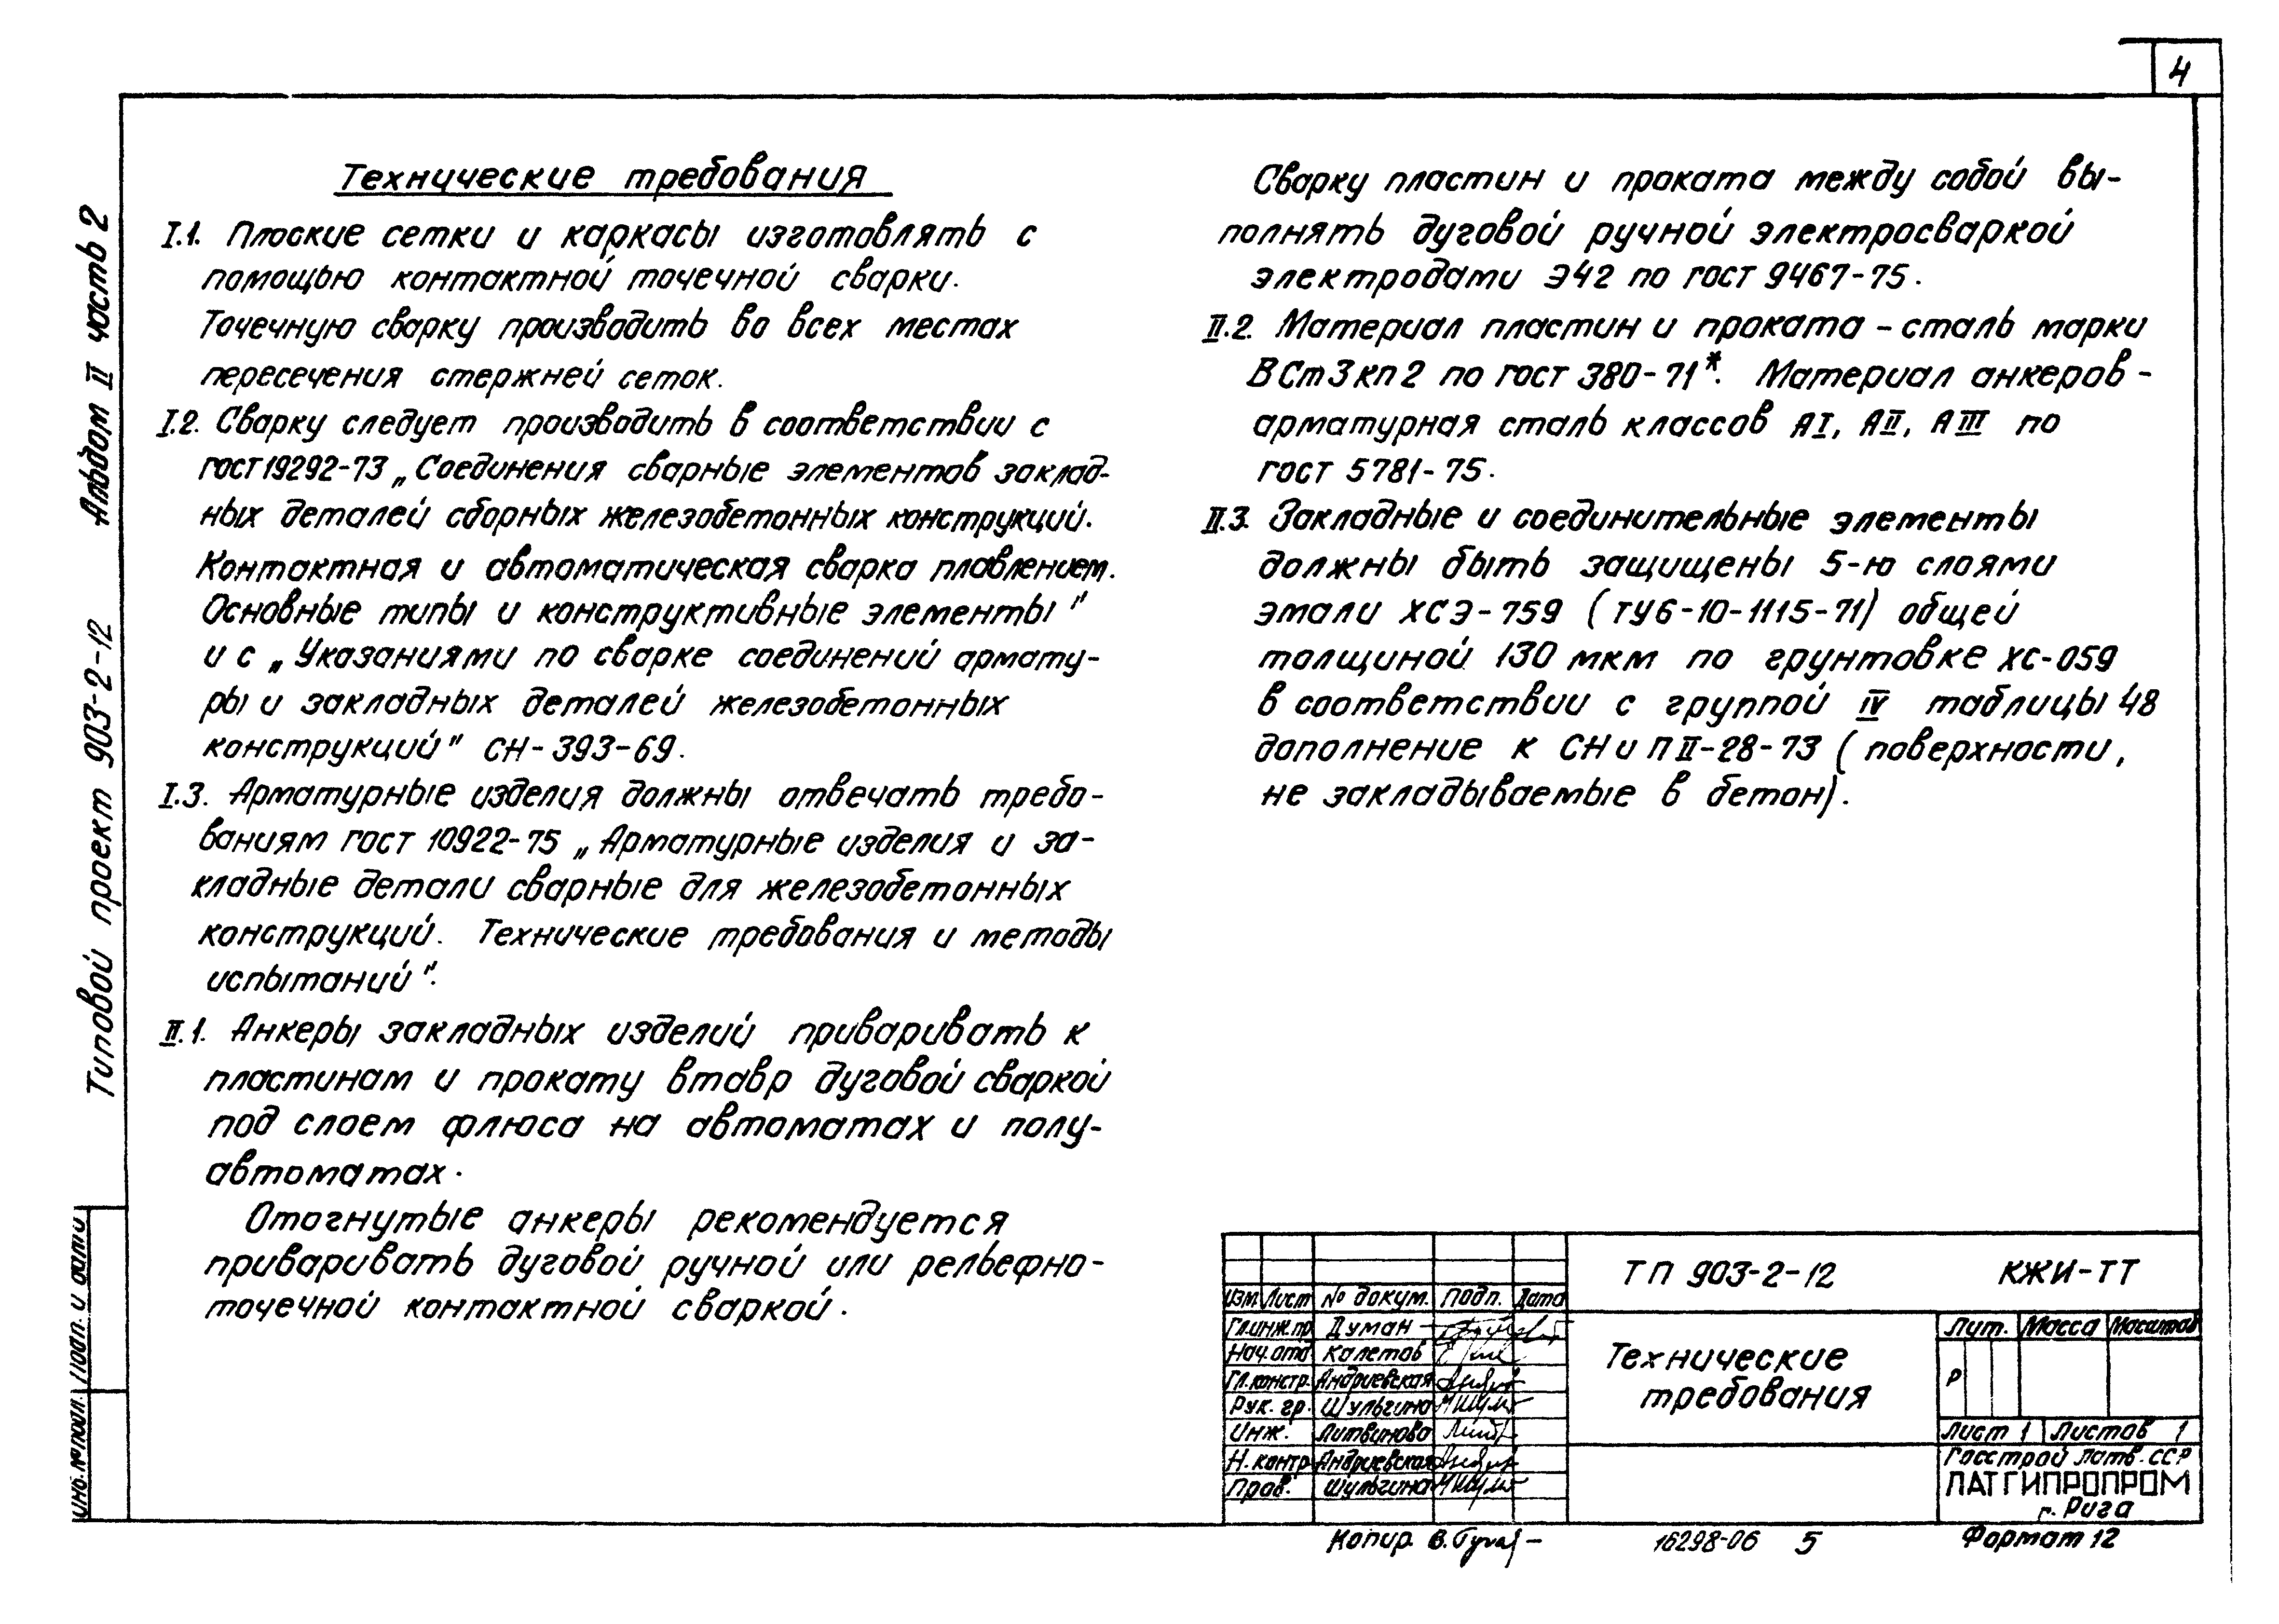 4
Альбом II часть 2
Типовой проект 903-2-12
Технические требования
I.1. Плоские сетки и каркасы изготовлять с
помощью контактной точечной сварки.
Точечную сварку производить во всех местах
пересечения стержней сеток.
I.2. Сварку следует производить в соответствии с
ГОСТ 19292-73 „Соединения сварные элементов заклад-
ных деталей сборных железобетонных конструкций.
Контактная и автоматическая сварка плавлением.
Основные типы и конструктивные элементы"
и с „Указаниями по сварке соединений армату-
ры и закладных деталей железобетонных
конструкций" СН-393-69.
I.3. Арматурные изделия должны отвечать требо-
ваниям ГОСТ 10922-75 „Арматурные изделия и за-
кладные детали сварные для железобетонных
конструкций. Технические требования и методы
испытаний".
II.1. Анкеры закладных изделий приваривать к
пластинам и прокату втавр дуговой сваркой
под слоем флюса на автоматах и полу-
автоматах.
Отогнутые анкеры рекомендуется
приваривать дуговой ручной или рельефно-
точечной контактной сваркой.
Сварку пластин и проката между собой вы-
полнять дуговой ручной электросваркой
электродами Э42 по ГОСТ 9467-75.
II.2. Материал пластин и проката - сталь марки
ВСт3кп2 по ГОСТ 380-71*. Материал анкеров -
арматурная сталь классов АI, АII, АIII по
ГОСТ 5781-75.
II.3. Закладные и соединительные элементы
должны быть защищены 5-ю слоями
эмали ХСЭ-759 (ТУ6-10-1115-71) общей
толщиной 130 мкм по грунтовке ХС-059
в соответствии с группой IV таблицы 48
дополнение к СНиП II-28-73 (поверхности,
не закладываемые в бетон).
Инв.№подл. Подп. и дата
Изм. Лист № докум. Подп. Дата
Гл.инж.пр. Думан
Нач.отд. Калетов
Гл.констр. Андриевская
Рук. гр. Шульгина
Инж. Литвинова
Н.контр. Андриевская
Пров. Шульгина
ТП 903-2-12 КЖИ-ТТ
Технические
требования
Лит. Масса Масштаб
Р
Лист 1 Листов 1
Госстрой Латв.ССР
ЛАТГИПРОПРОМ
г. Рига
Копир. В.
16298-06 5
Формат 12